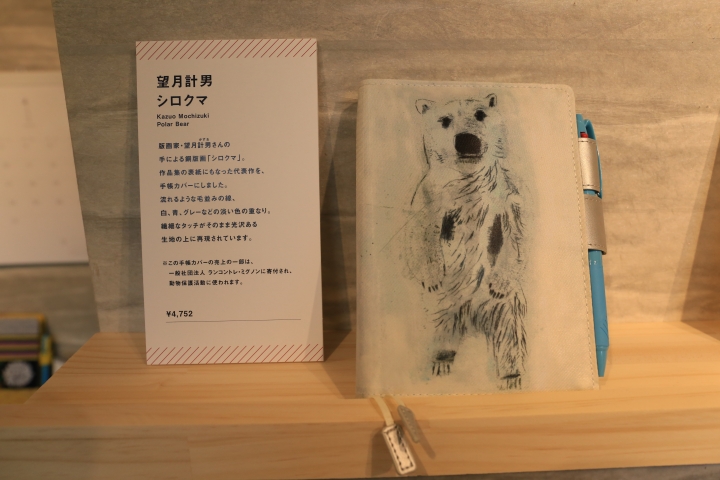 望月計男
シロクマ
Kazuo Mochizuki
Polar Bear
版画家・望月計男さんの
手による銅版画「シロクマ」。
作品集の表紙にもなった代表作を、
手帳カバーにしました。
流れるような毛並みの線、
白、青、グレーなどの淡い色の重なり。
繊細なタッチがそのまま光沢ある
生地の上に再現されています。
※この手帳カバーの売上の一部は、
一般社団法人 ランコントレ・ミグノンに寄付され、
動物保護活動に使われます。
¥4,752